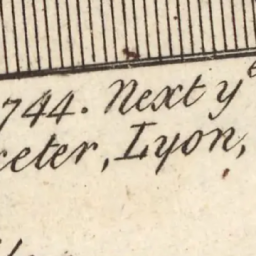 744. Next yᵉ
ceter, Lyon,